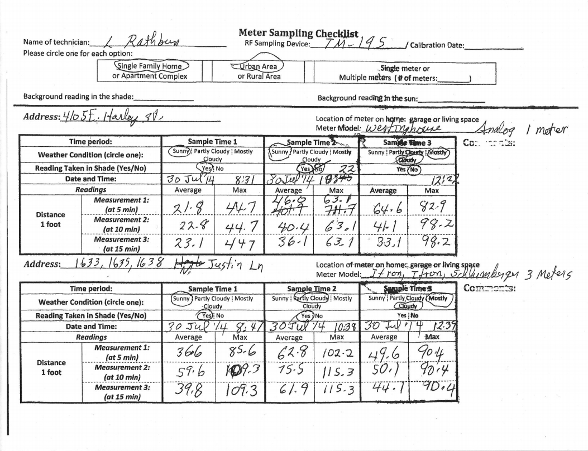 Meter Sampling Checklist
Name of technician: L Rathbun RF Sampling Device: TM-195 / Calibration Date:
Please circle one for each option:
Single Family Home Urban Area Single meter or
or Apartment Complex or Rural Area Multiple meters (# of meters: )
Background reading in the shade: Background reading in the sun:
Address: Location of meter on home: garage or living space
Meter Model: Westinghouse Analog 1 meter
Time period: Sample 1 Sample 2 Sample Time 3 Comments:
Weather Condition (circle one): Sunny | Partly Cloudy | Mostly Cloudy Sunny | Partly Cloudy | Mostly Cloudy Sunny | Partly Cloudy | Mostly Cloudy
Reading Taken in Shade (Yes/No) Yes | No Yes | No Yes / No
Date and Time: 30 Jul 14 8:31 30 Jul 14
Readings Average Max Average Max Average Max
Distance 1 foot
Measurement 1: (at 5 min) 21.8 44.7 46.8 63.1 64.6 82.9
Measurement 2: (at 10 min) 22.8 44.7 40.4 63.1 41.1 98.2
Measurement 3: (at 15 min) 23.1 447 36.1 63.1 33.1 98.2
Address: 1633, 1635, 1638 Justin Ln Location of meter on home: garage or living space
Meter Model: Itron, Itron, Schlumberger 3 Meters
Time period: Sample 1 Sample Time 2 Sample Time 3 Comments:
Weather Condition (circle one): Sunny | Partly Cloudy | Mostly Cloudy Sunny | Partly Cloudy | Mostly Cloudy Sunny | Partly Cloudy | Mostly Cloudy
Reading Taken in Shade (Yes/No) Yes | No Yes | No Yes | No
Date and Time: 30 Jul 14 8:47 30 Jul 14 10:38 30 Jul 14 12:39
Readings Average Max Average Max Average Max
Distance 1 foot
Measurement 1: (at 5 min) 36.6 85.6 62.8 102.2 49.6 90.4
Measurement 2: (at 10 min) 59.6 109.3 75.5 115.3 50.1 90.4
Measurement 3: (at 15 min) 39.8 109.3 61.9 115.3 44.1 90.4